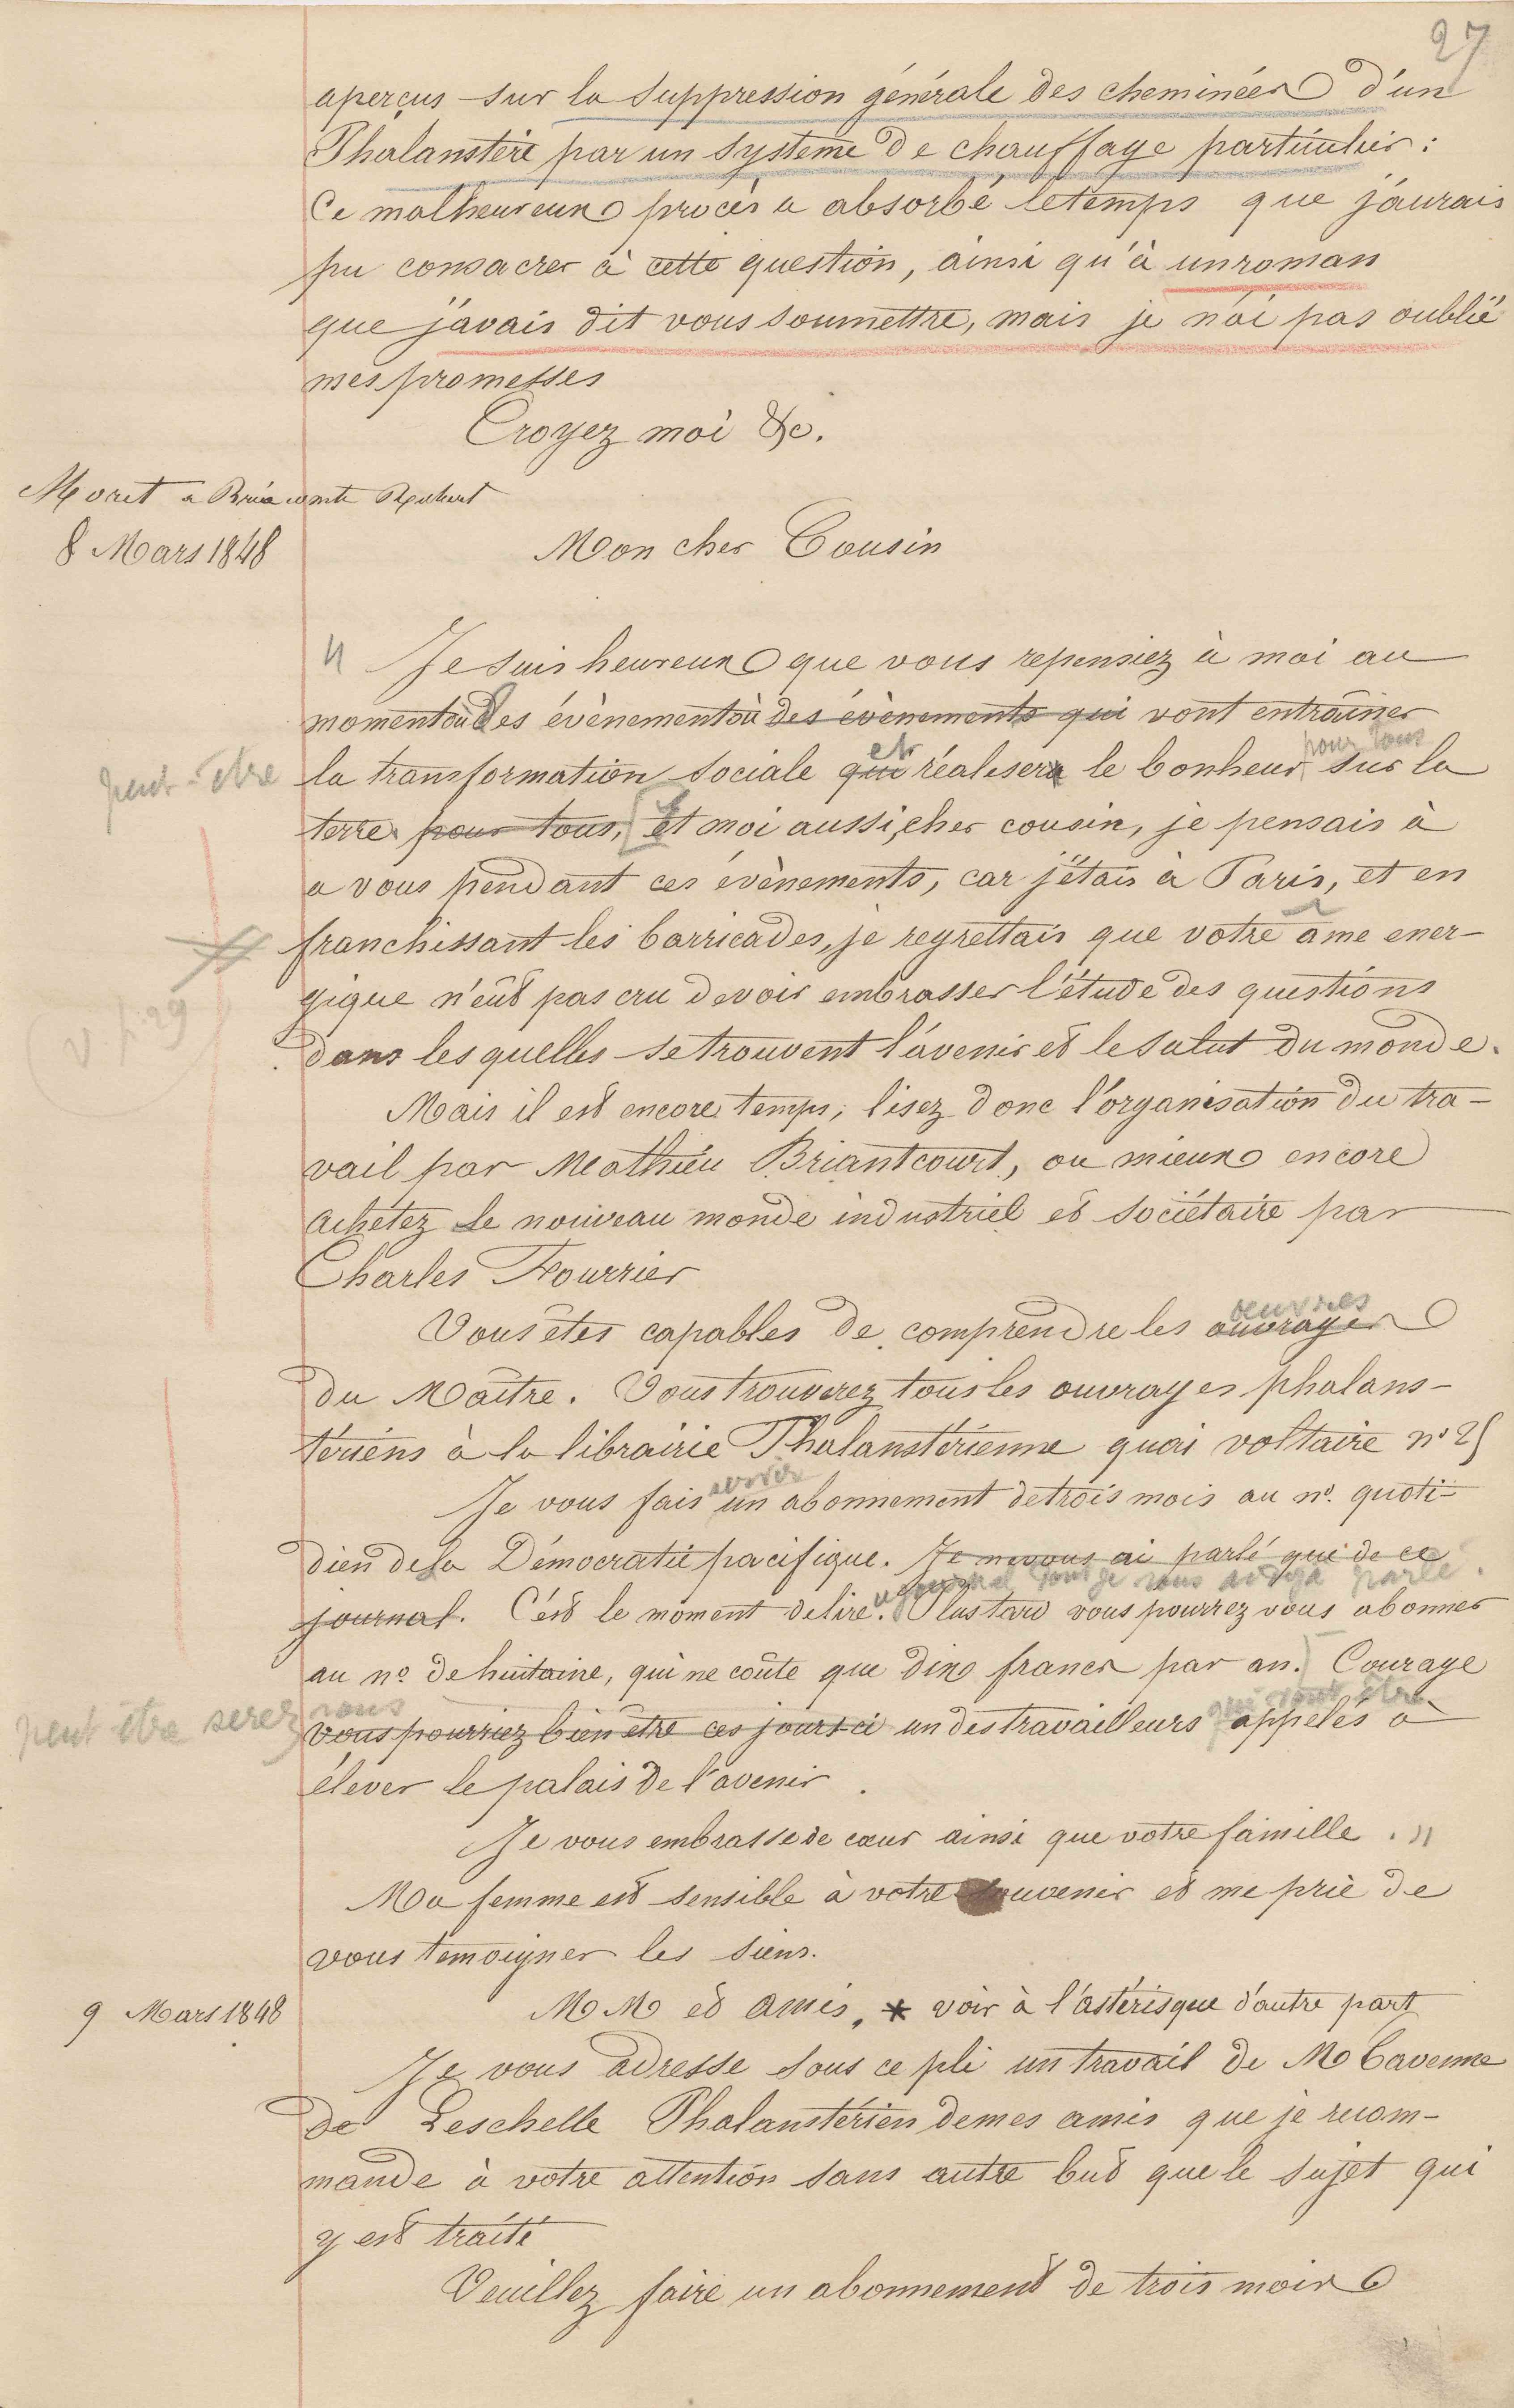 27
aperçus sur la suppression générale des cheminées d'un
Phalanstère par un système de chauffage particulier :
Ce malheureux procès a absorbé le temps que j'aurais
pu consacrer à cette question, ainsi qu'à un roman
que j'avais dit vous soumettre, mais je n'ai pas oublié
mes promesses
Croyez moi &c.
Moret a Brie comte Robert
8 Mars 1848
Mon cher Cousin
" Je suis heureux que vous repensiez à moi au
moment où des évènement où des évènements qui vont entraîner
et pour tous
peut-être la transformation sociale qui réalisera le bonheur sur la
terre pour tous, et moi aussi, cher cousin, je pensais à
a vous pendant ces évènements, car j'étais à Paris, et en
franchissant les barricades, je regrettais que votre âme ener-
gique n'eût pas cru devoir embrasser l'étude des questions
V p. 29
dans les quelles se trouvent l'avenir et le salut du monde.
Mais il est encore temps, lisez donc l'organisation du tra-
vail par Mathieu Briantcourt, ou mieux encore
achetez le nouveau monde industriel et sociétaire par
Charles Fourrier
oeuvres
Vous êtes capables de comprendre les ouvrages
du Maître. Vous trouverez tous les ouvrages phalans-
tériens à la librairie Phalanstérienne quai voltaire n° 25
servir
Je vous fais un abonnement de trois mois au n°. quoti-
dien de la Démocratie pacifique. Je ne vous ai parlé que de ce
journal dont je vous ai déjà parlé.
journal. C'est le moment de lire. Plus tard vous pourrez vous abonner
au n° de huitaine, qui ne coûte que dix francs par an. Courage
peut être serez vous qui sont être
vous pourriez bien être ces jours-ci un des travailleurs appelés à
élever le palais de l'avenir.
Je vous embrasse de cœur ainsi que votre famille. "
Ma femme est sensible à votre souvenir et me prie de
vous temoigner les siens.
9 Mars 1848
MM et amis, * voir à l'astérisque d'autre part
Je vous adresse sous ce pli un travail de M Cavenne
de Leschelle Phalanstérien de mes amis que je recom-
mande à votre attention sans autre but que le sujet qui
y est traité
Veuillez faire un abonnement de trois mois